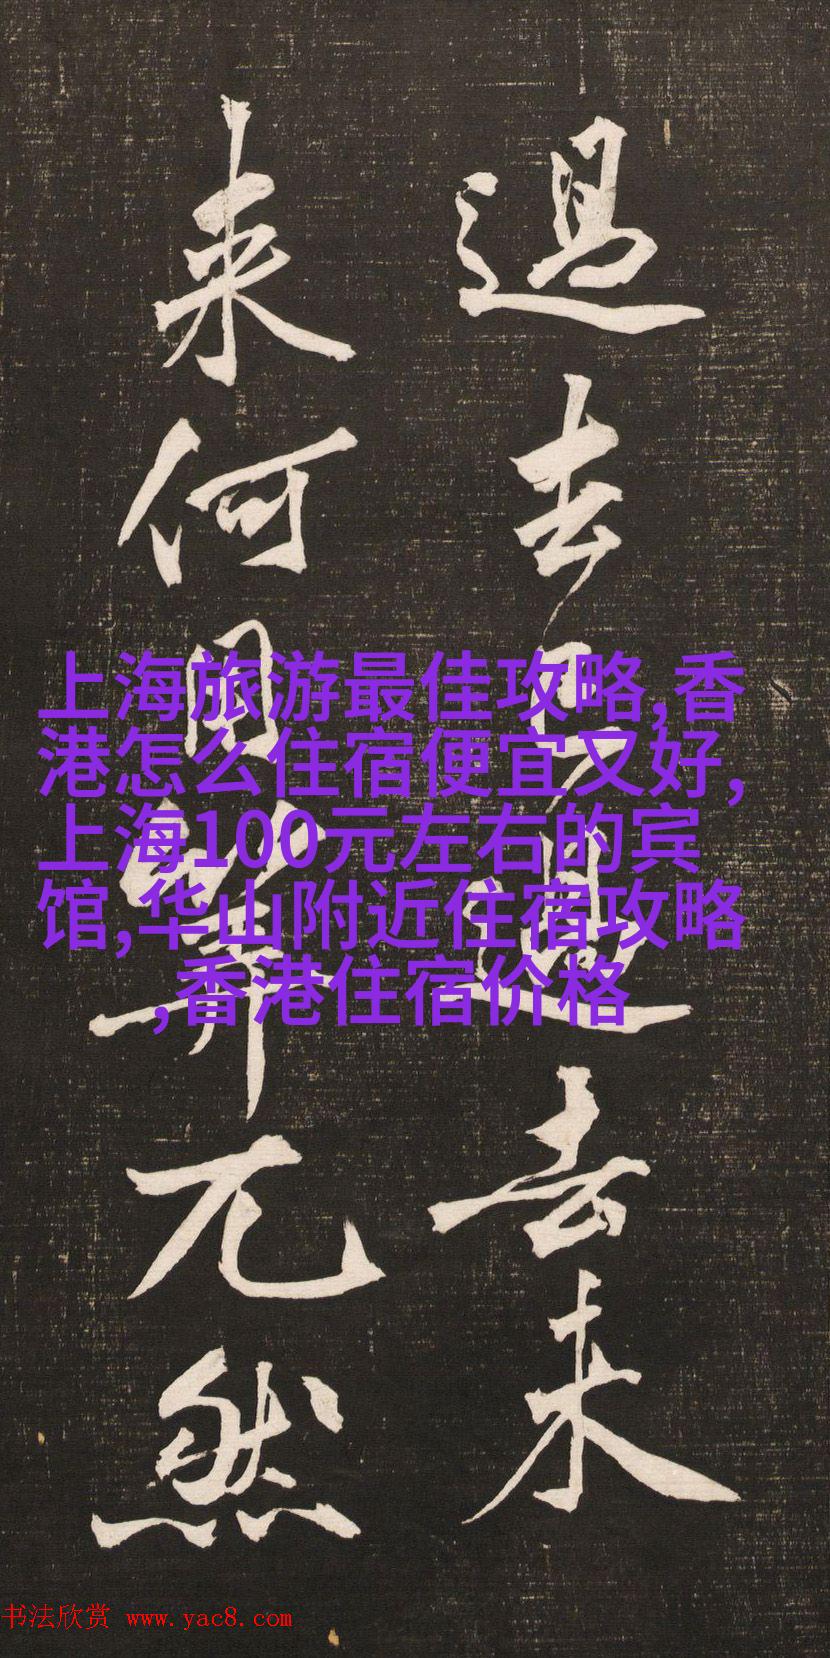 過去已過去未
来何用筭兀然
上海旅游最佳攻略,香
港怎么住宿便宜又好,
上海100元左右的宾
馆,华山附近住宿攻略
,香港住宿价格
书法欣赏 www.yac8.com